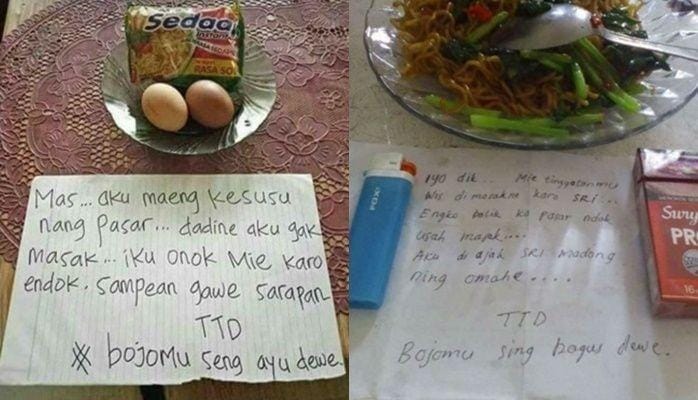 Sedaap
instant
RASA SOTO
Mas... aku maeng kesusu
nang pasar... dadine aku gak
masak... iku onok Mie karo
endok. Sampean gawe sarapan
TTD
bojomu seng ayu dewe.
FOX
Iyo dik... Mie tinggalanmu
wis di masakne karo SRI...
Engko balik ko pasar ndak
usah masak....
Aku di ajak SRI madang
ning omahe....
TTD
Bojomu sing bagus dewe.
Surya
PRO
16